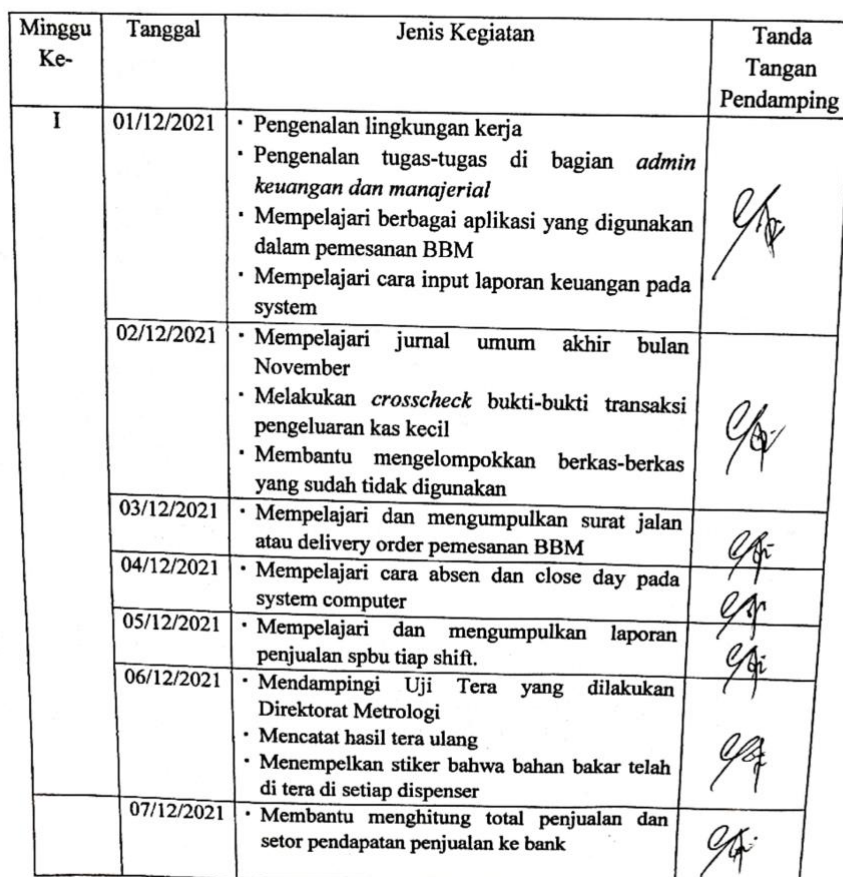 Minggu Ke-
Tanggal
Jenis Kegiatan
Tanda Tangan Pendamping
I
01/12/2021
· Pengenalan lingkungan kerja
· Pengenalan tugas-tugas di bagian admin
keuangan dan manajerial
· Mempelajari berbagai aplikasi yang digunakan
dalam pemesanan BBM
· Mempelajari cara input laporan keuangan pada
system
02/12/2021
· Mempelajari jurnal umum akhir bulan
November
· Melakukan crosscheck bukti-bukti transaksi
pengeluaran kas kecil
· Membantu mengelompokkan berkas-berkas
yang sudah tidak digunakan
03/12/2021
· Mempelajari dan mengumpulkan surat jalan
atau delivery order pemesanan BBM
04/12/2021
· Mempelajari cara absen dan close day pada
system computer
05/12/2021
· Mempelajari dan mengumpulkan laporan
penjualan spbu tiap shift.
06/12/2021
· Mendampingi Uji Tera yang dilakukan
Direktorat Metrologi
· Mencatat hasil tera ulang
· Menempelkan stiker bahwa bahan bakar telah
di tera di setiap dispenser
07/12/2021
· Membantu menghitung total penjualan dan
setor pendapatan penjualan ke bank